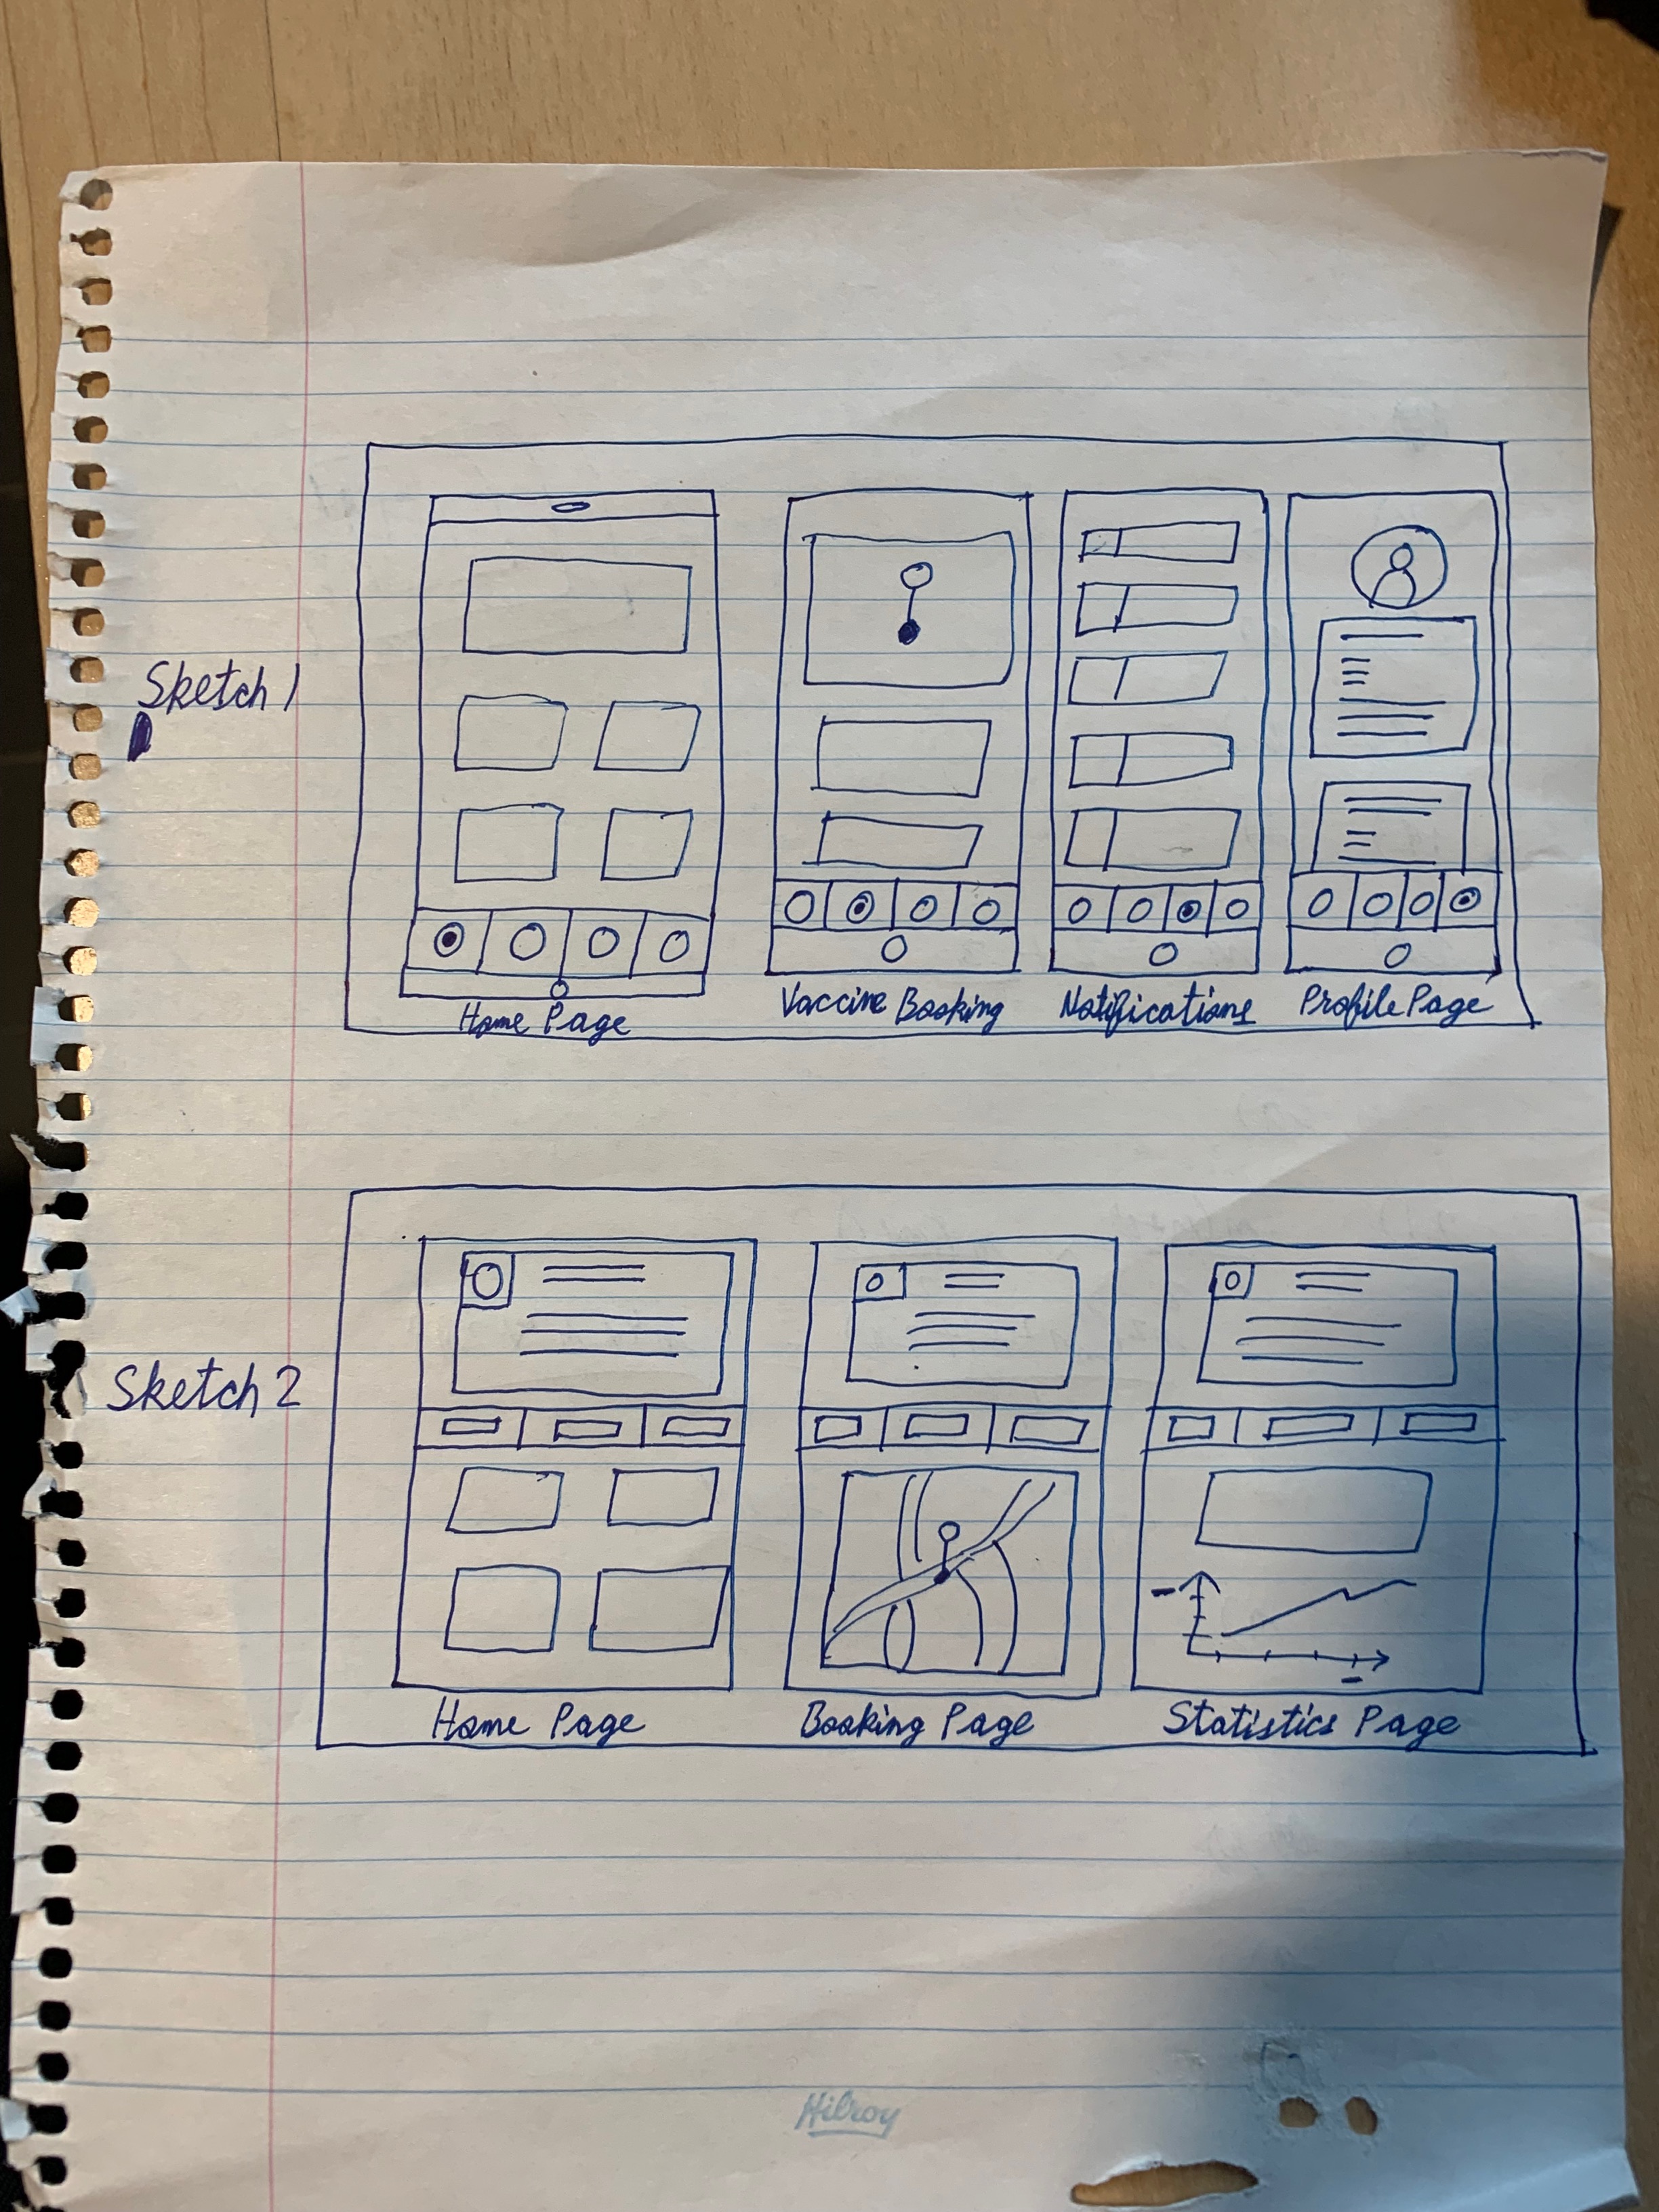 Sketch 1
Home Page
Vaccine Booking
Notifications
Profile Page
Sketch 2
Home Page
Booking Page
Statistics Page
Hilroy